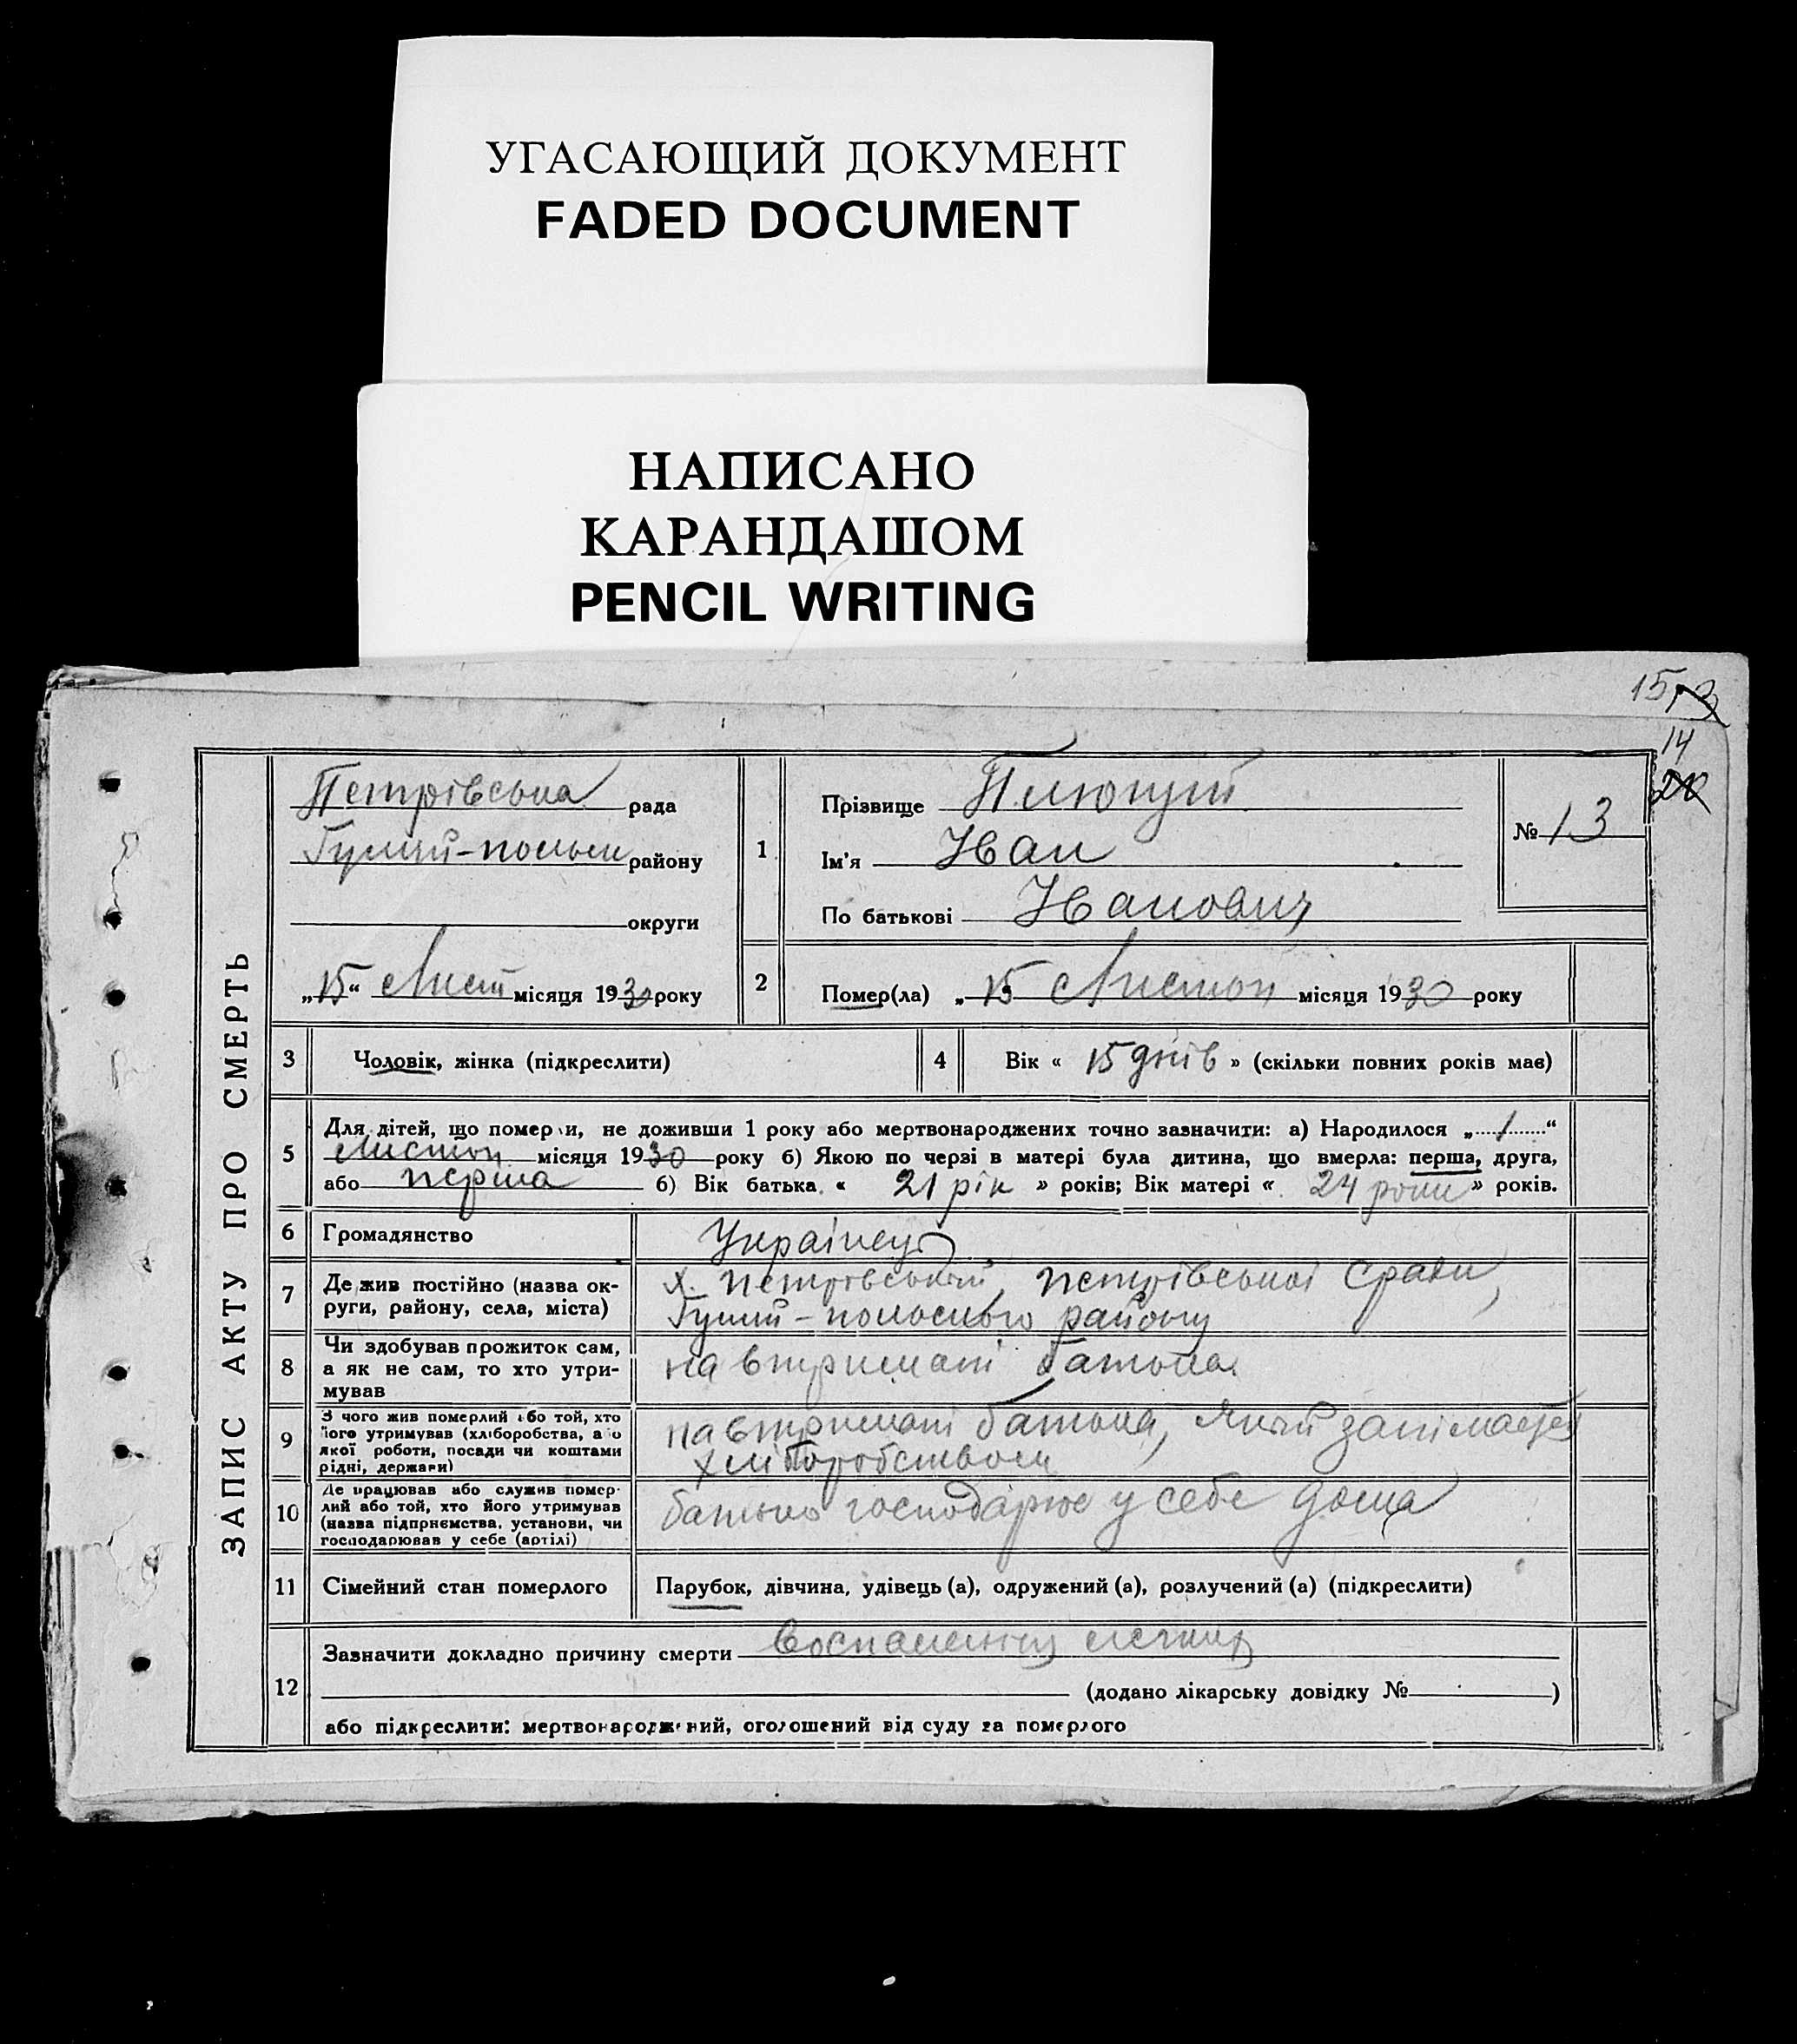 УГАСАЮЩИЙ ДОКУМЕНТ
FADED DOCUMENT
НАПИСАНО
КАРАНДАШОМ
PENCIL WRITING
15
14
20
ЗАПИС АКТУ ПРО СМЕРТЬ
Петрівська рада
Гуляй-польск району
округи
„15“ Лист місяця 1930 року
1
Прізвище
Ім'я Иван
По батькові Иванович
№ 13
2
Помер(ла) „15 Листоп місяця 1930 року
3 Чоловік, жінка (підкреслити)
4 Вік « 15 днів » (скільки повних років має)
5
Для дітей, що померли, не доживши 1 року або мертвонароджених точно зазначити: а) Народилося „1“
Листоп місяця 1930 року б) Якою по черзі в матері була дитина, що вмерла: перша, друга,
або перша б) Вік батька « 21 рік » років; Вік матері « 24 роки » років.
6 Громадянство Українец
7 Де жив постійно (назва ок-
руги, району, села, міста)
х. Петрівський, Петрівської с/ради,
Гуляй-польського району
8
Чи здобував прожиток сам,
а як не сам, то хто утри-
мував
на втримані батька
9
З чого жив померлий або той, хто
його утримував (хліборобства, або
якої роботи, посади чи коштами
рідні, держави)
на втримані батька, який занімається
хліборобством
10
Де працював або служив помер-
лий або той, хто його утримував
(назва підприємства, установи, чи
господарював у себе (артілі)
батько господарює у себе дома
11 Сімейний стан померлого Парубок, дівчина, удівець (а), одружений (а), розлучений (а) (підкреслити)
12
Зазначити докладно причину смерти воспаления легких
(додано лікарську довідку № )
або підкреслити: мертвонароджений, оголошений від суду за померлого